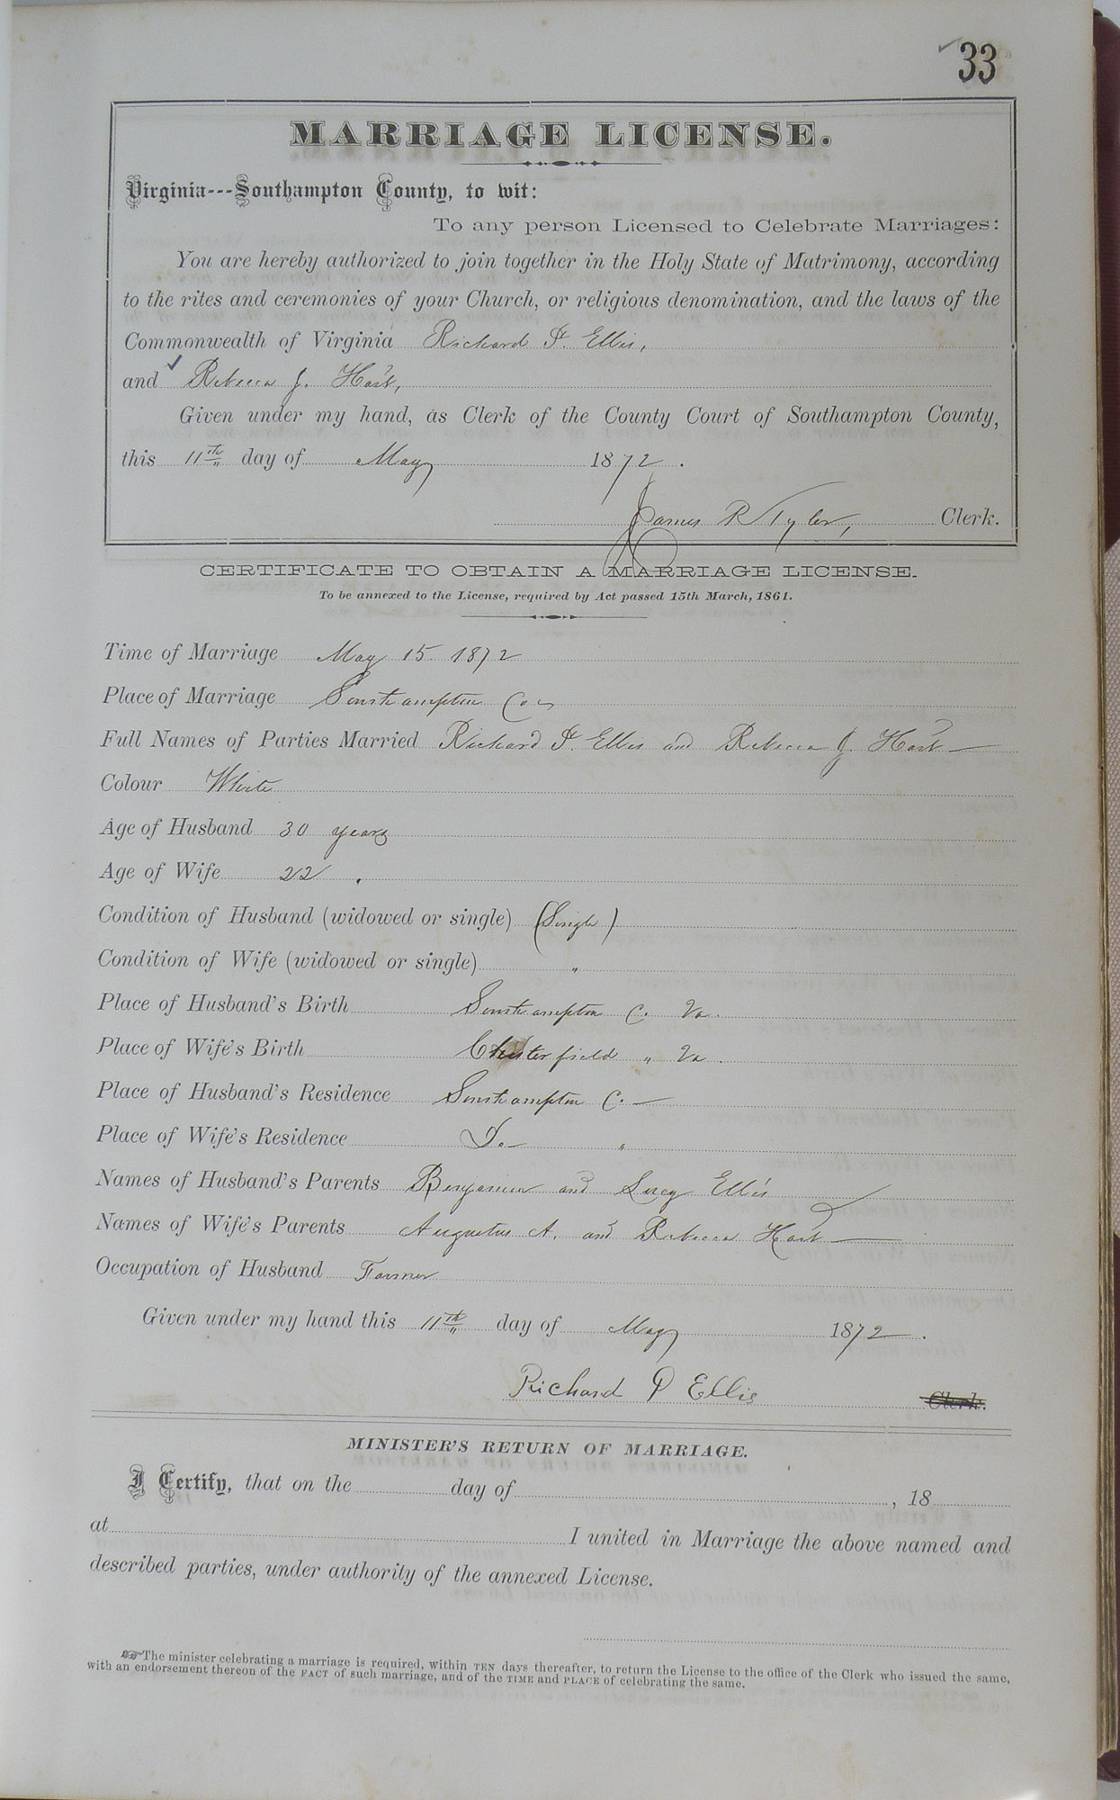 33
MARRIAGE LICENSE.
Virginia---Southampton County, to wit:
To any person Licensed to Celebrate Marriages:
You are hereby authorized to join together in the Holy State of Matrimony, according
to the rites and ceremonies of your Church, or religious denomination, and the laws of the
Commonwealth of Virginia Richard P. Ellis,
and Rebecca J. Hart,
Given under my hand, as Clerk of the County Court of Southampton County,
this 11th day of May 1872.
James R Tyler, Clerk.
CERTIFICATE TO OBTAIN A MARRIAGE LICENSE.
To be annexed to the License, required by Act passed 15th March, 1861.
Time of Marriage May 15 1872
Place of Marriage Southampton Co
Full Names of Parties Married Richard P. Ellis and Rebecca J. Hart
Colour White
Age of Husband 30 years
Age of Wife 22 .
Condition of Husband (widowed or single) (Single)
Condition of Wife (widowed or single) "
Place of Husband's Birth Southampton C. Va.
Place of Wife's Birth Chesterfield " Va.
Place of Husband's Residence Southampton C. —
Place of Wife's Residence Do- "
Names of Husband's Parents Benjamin and Lucy Ellis
Names of Wife's Parents Augustus A. and Rebecca Hart —
Occupation of Husband Farmer
Given under my hand this 11th day of May 1872.
Richard P Ellis Clerk.
MINISTER'S RETURN OF MARRIAGE.
I Certify, that on the day of , 18
at I united in Marriage the above named and
described parties, under authority of the annexed License.
☞The minister celebrating a marriage is required, within TEN days thereafter, to return the License to the office of the Clerk who issued the same,
with an endorsement thereon of the FACT of such marriage, and of the TIME and PLACE of celebrating the same.